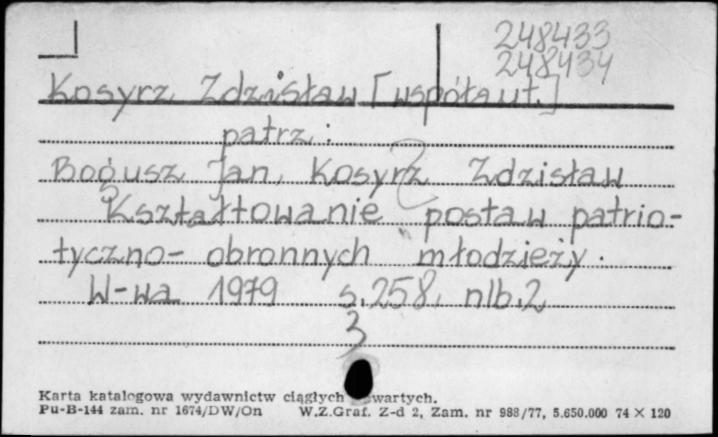 248433
248434
Kosyrz Zdzisław [współaut.]
patrz:
Bogusz Jan, Kosyrz Zdzisław
Kształtowanie postaw patrio-
tyczno-obronnych młodzieży.
W-wa 1979 s. 258, nlb. 2
3
Karta katalogowa wydawnictw ciągłych wartych.
Pu-B-144 zam. nr 1674/DW/On W.Z.Graf. Z-d 2, Zam. nr 988/77, 5.650.000 74 × 120